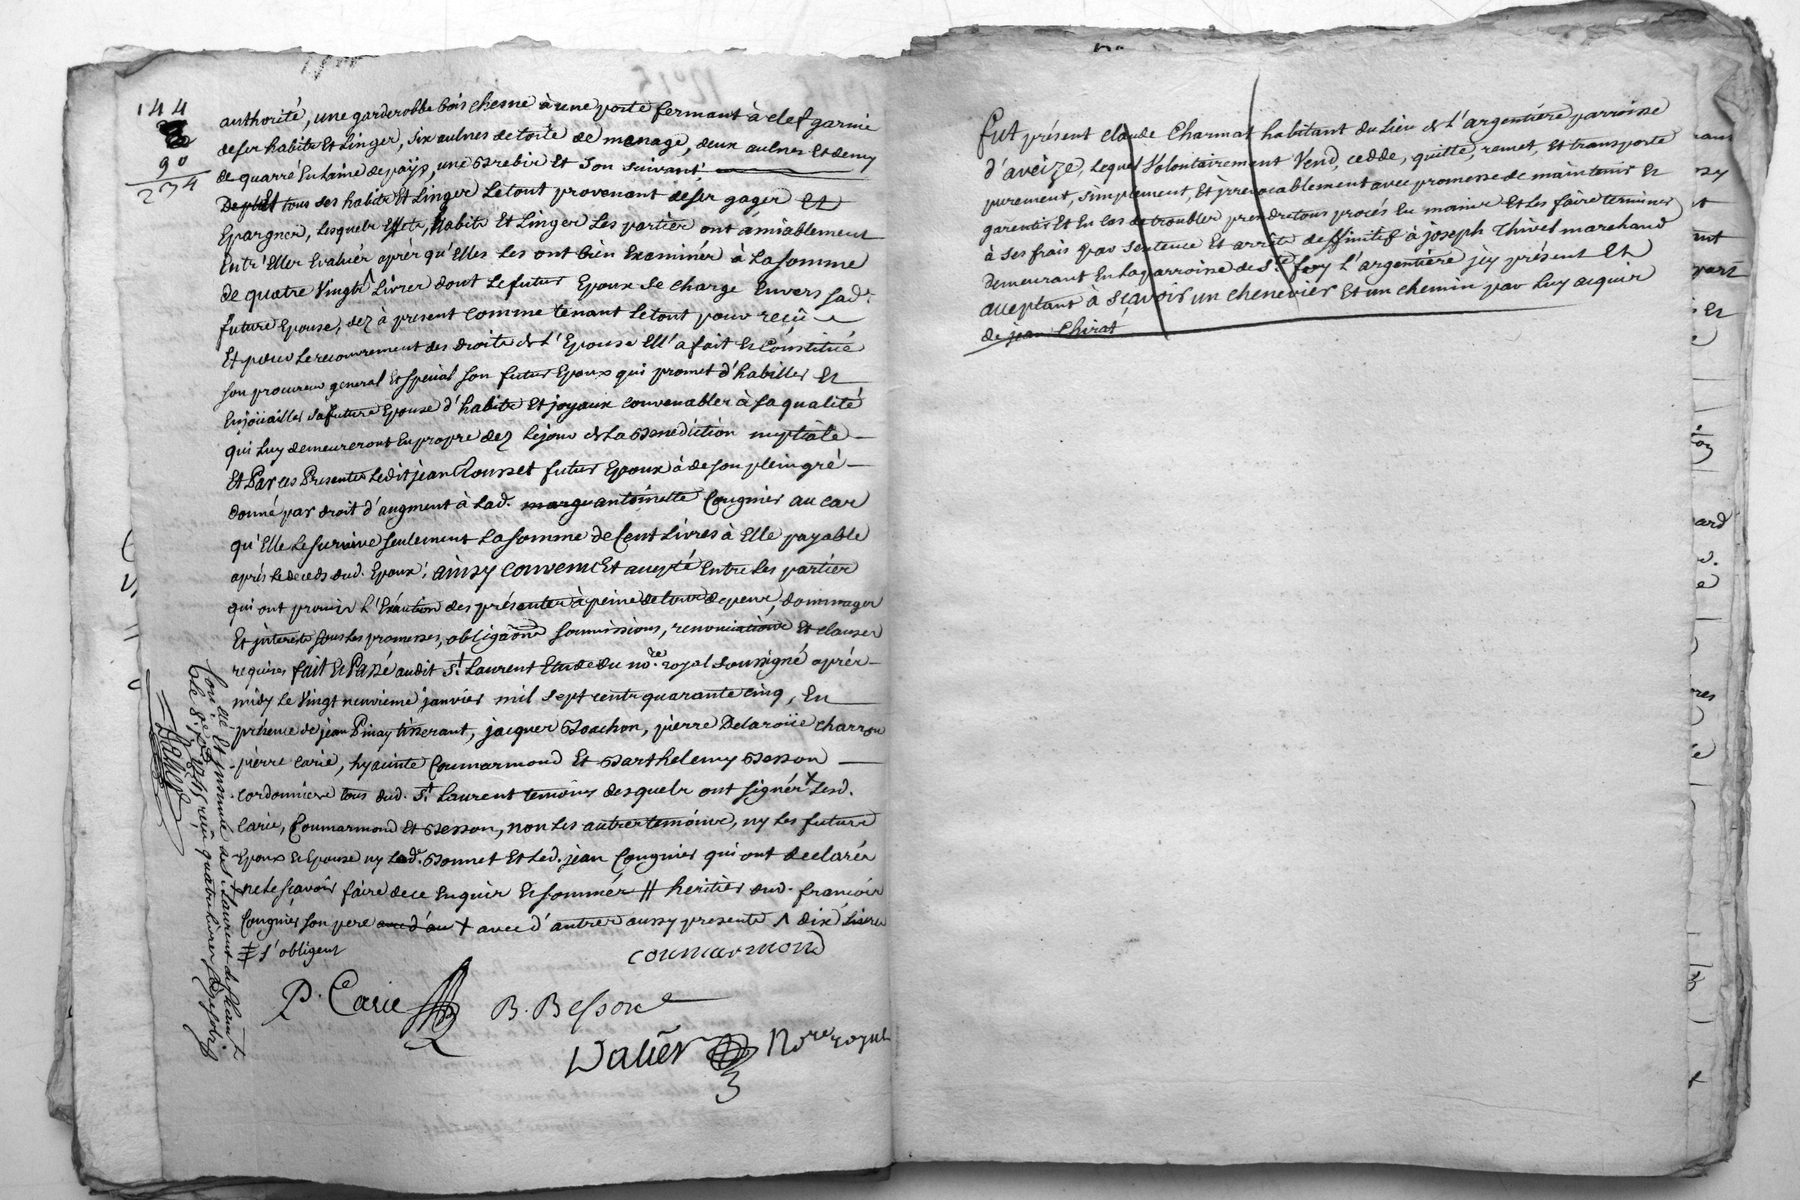 144
90
234
authorité, une garderobbe bois chesne à une porte fermant à clef garnie
de ses habits Et Linges, six aulnes de toile de menage, deux aulnes Et demy
de quarré En Laine de päys, une Brebis Et son suivant,
tous ses habits Et Linges Le tout provenant de ses gages Et
Epargnes, Lesquels Effets, habits Et Linges Les parties ont amiablement
Entr'Elles Evalués après qu'Elles Les ont bien Examinés à La somme
de quatre Vingts ^ Livres dont Le futur Epoux se charge Envers Lad.e
future Epouse, dez à present comme tenant Le tout pour reçû
Et pour Le recouvrement des droits de L'Epouse Ell'a fait Et Constitué
son procureur general Et special son futur Epoux qui promet d'habiller Et
Enjoüailler sa future Epouse d'habits Et joyaux convenables à sa qualité
qui Luy demeureront En propre dez Le jour de La Benediction nuptiale
Et Par ces Presentes Ledit jean Rousset futur Epoux à de son plein gré
donné par droit d'augment à Lad. antoinette Cougnier au cas
qu'Elle Le survive seulement La somme de Cent Livres à Elle payable
après Le deceds dud. Epoux, ainsy convenu Et accepté Entre Les parties
qui ont promis L'Exécution des présentes à peine de tous depens, dommages
Et jnterests sous Les promesses, obligaõns soumissions, renonciations Et clauses
requises fait Et Passé audit S.t Laurent Etude du no.re royal soussigné après
midy Le Vingt neuvieme janvier mil sept cents quarante cinq, En
présence de jean Pinay tisserant, jacques Boachon, pierre Delaroüe charron
pierre Carie, hyacinte Coumarmond Et Barthelemy Besson
cordonniers tous dud. S.t Laurent temoins desquels ont signés + Lesd.
Carie, Coumarmond Et Besson, non Les autres temoins, ny Les futurs
Epoux Et Epouse ny Lad.e Bonnet Et Led. jean Cougnier qui ont declarés
ne Le sçavoir faire de ce Enquis Et sommés # heritier dud. françois
Cougnier son pere + avec d'autres aussy presents ^ dix Livres
‡ s'obligent
coumarmond
P. Carie
B. Besson
Valier
No.re royal
Fut présent claude Charmat habitant du Lieu de L'argentiere parroisse
d'aveize, Lequel Volontairement Vend, cedde, quitte, remet, Et transporte
purement, simplement, Et jrrevocablement avec promesse de maintenir Et
garentir Et En cas de troubles prendre tous procés En mains Et Les faire terminer
à ses frais par sentence Et arrêts deffinitifs à joseph Thivel marchand
demeurant En La parroisse de S.te foy L'argentiere jcy présent Et
acceptant à Scavoir un chenevier Et un chemin par Luy acquis
de jean Chirat